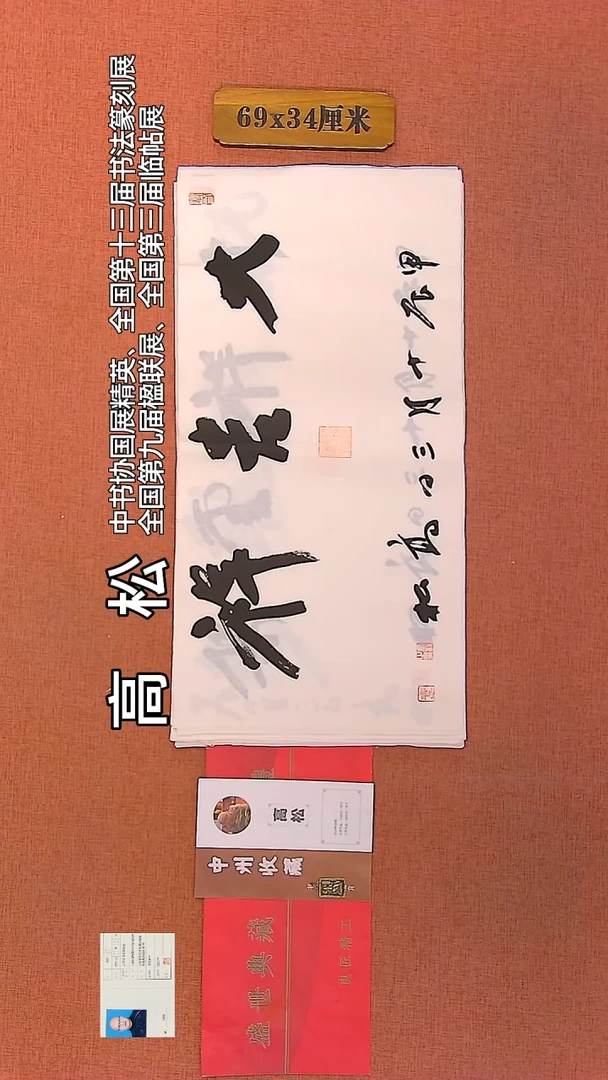 69x34厘米
中书协国展精英、全国第十三届书法篆刻展
全国第九届楹联展、全国第三届临帖展
高 松
大吉祥
甲辰十月三日高松
高松
中州收藏
盛世典藏
良匠精工